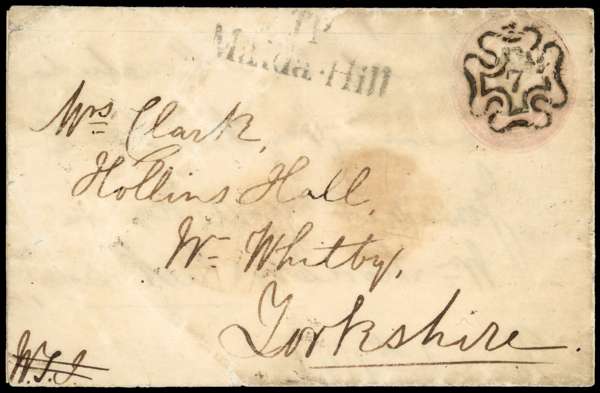 TP
Maida-Hill
7
Mrs Clark,
Hollins Hall,
Nr Whitby,
Yorkshire.
W.J.J.